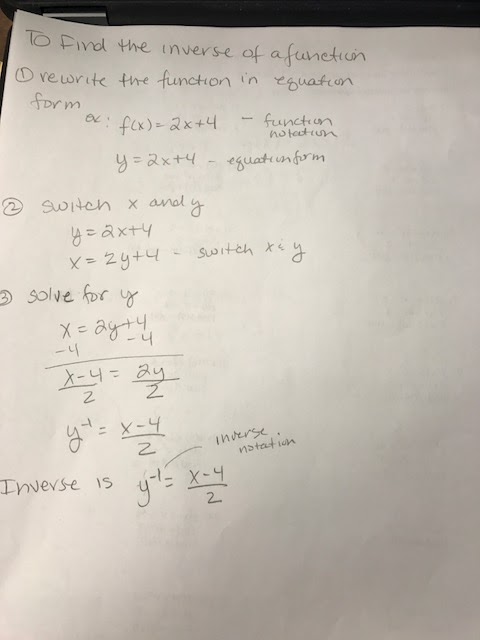 To Find the inverse of a function
① rewrite the function in equation
form
ex: f(x) = 2x+4 - function
notation
y = 2x+4 - equation form
② switch x and y
y = 2x+4
x = 2y+4 - switch x & y
③ solve for y
x = 2y+4
-4 -4
x-4 = 2y
2 2
y⁻¹ = x-4
2
inverse
notation
Inverse is y⁻¹ = x-4
2